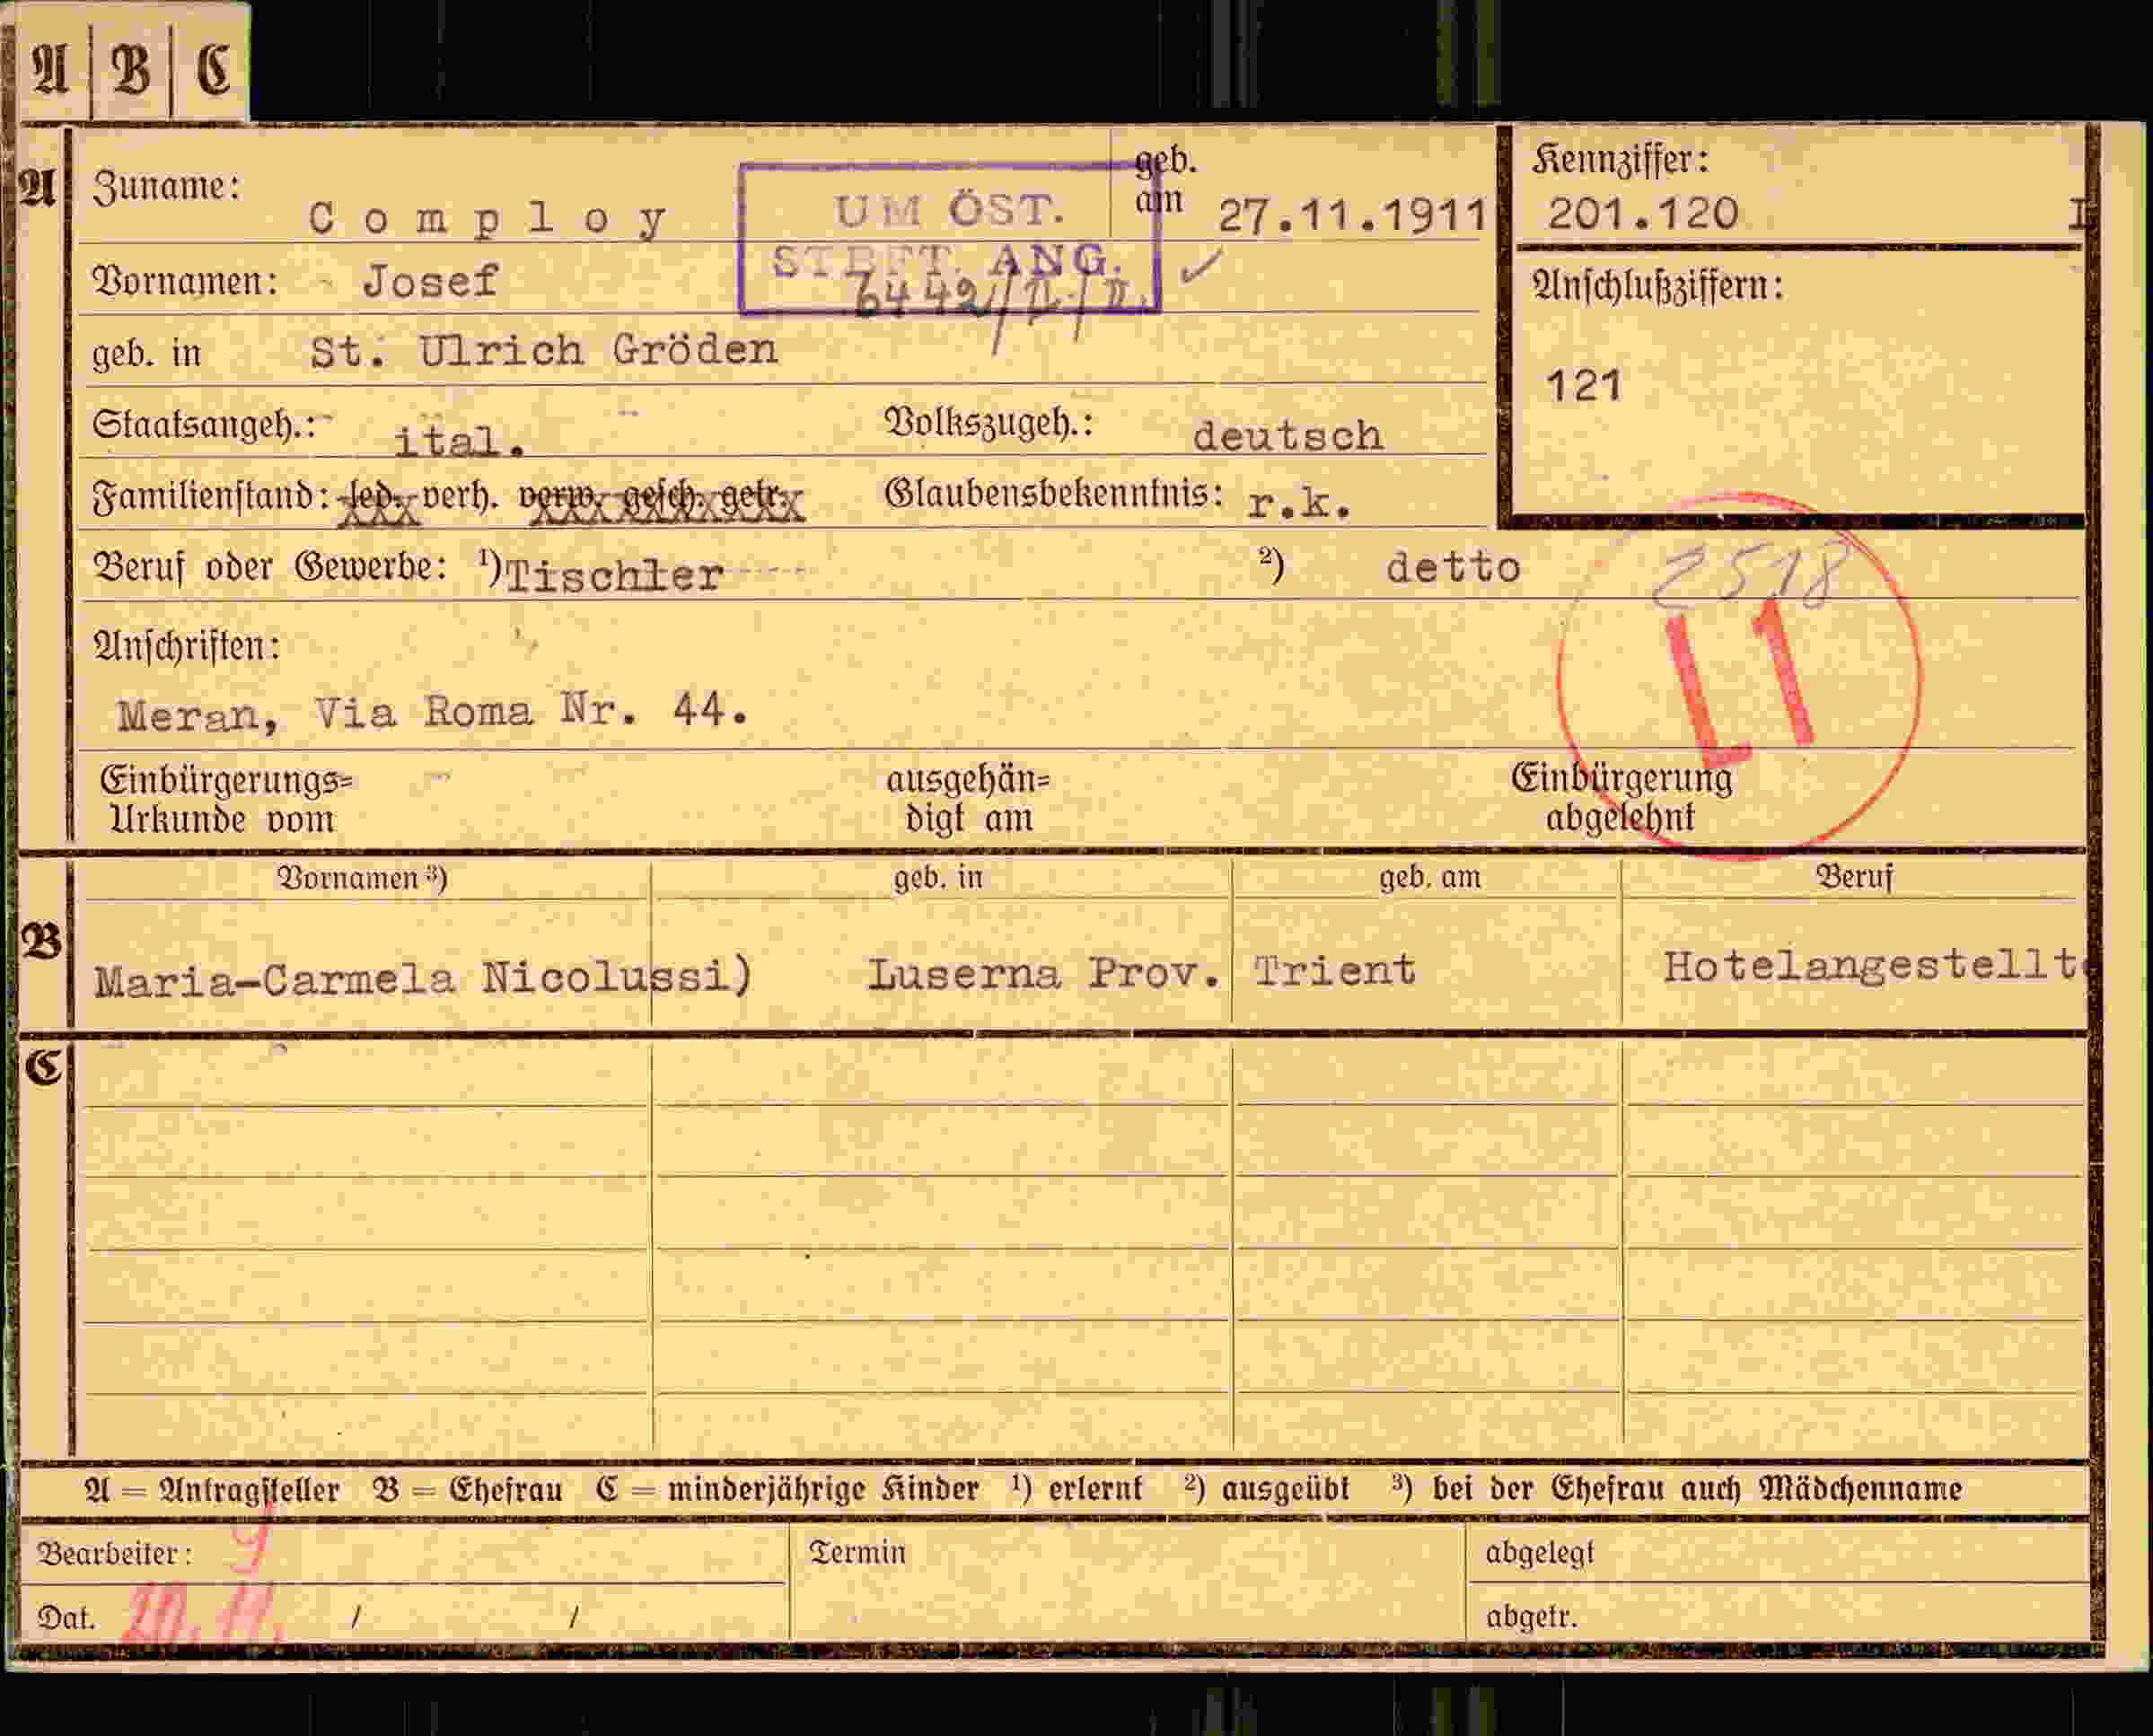 A B C
A Zuname: Comploy geb. am 27.11.1911 Kennziffer: 201.120 I
UM ÖST. STBFT. ANG. 6442/II/II.
Vornamen: Josef Anschlußziffern: 121
geb. in St. Ulrich Gröden
Staatsangeh.: ital. Volkszugeh.: deutsch
Familienstand: led. verh. verw. gesch. getr. Glaubensbekenntnis: r.k.
Beruf oder Gewerbe: ¹) Tischler ²) detto
2518
L1
Anschriften:
Meran, Via Roma Nr. 44.
Einbürgerungs= Urkunde vom ausgehän= digt am Einbürgerung abgelehnt
Vornamen ³) geb. in geb. am Beruf
B Maria-Carmela Nicolussi) Luserna Prov. Trient Hotelangestellte
C
A = Antragsteller B = Ehefrau C = minderjährige Kinder ¹) erlernt ²) ausgeübt ³) bei der Ehefrau auch Mädchenname
Bearbeiter: Termin abgelegt
Dat. 20.11. / / abgetr.